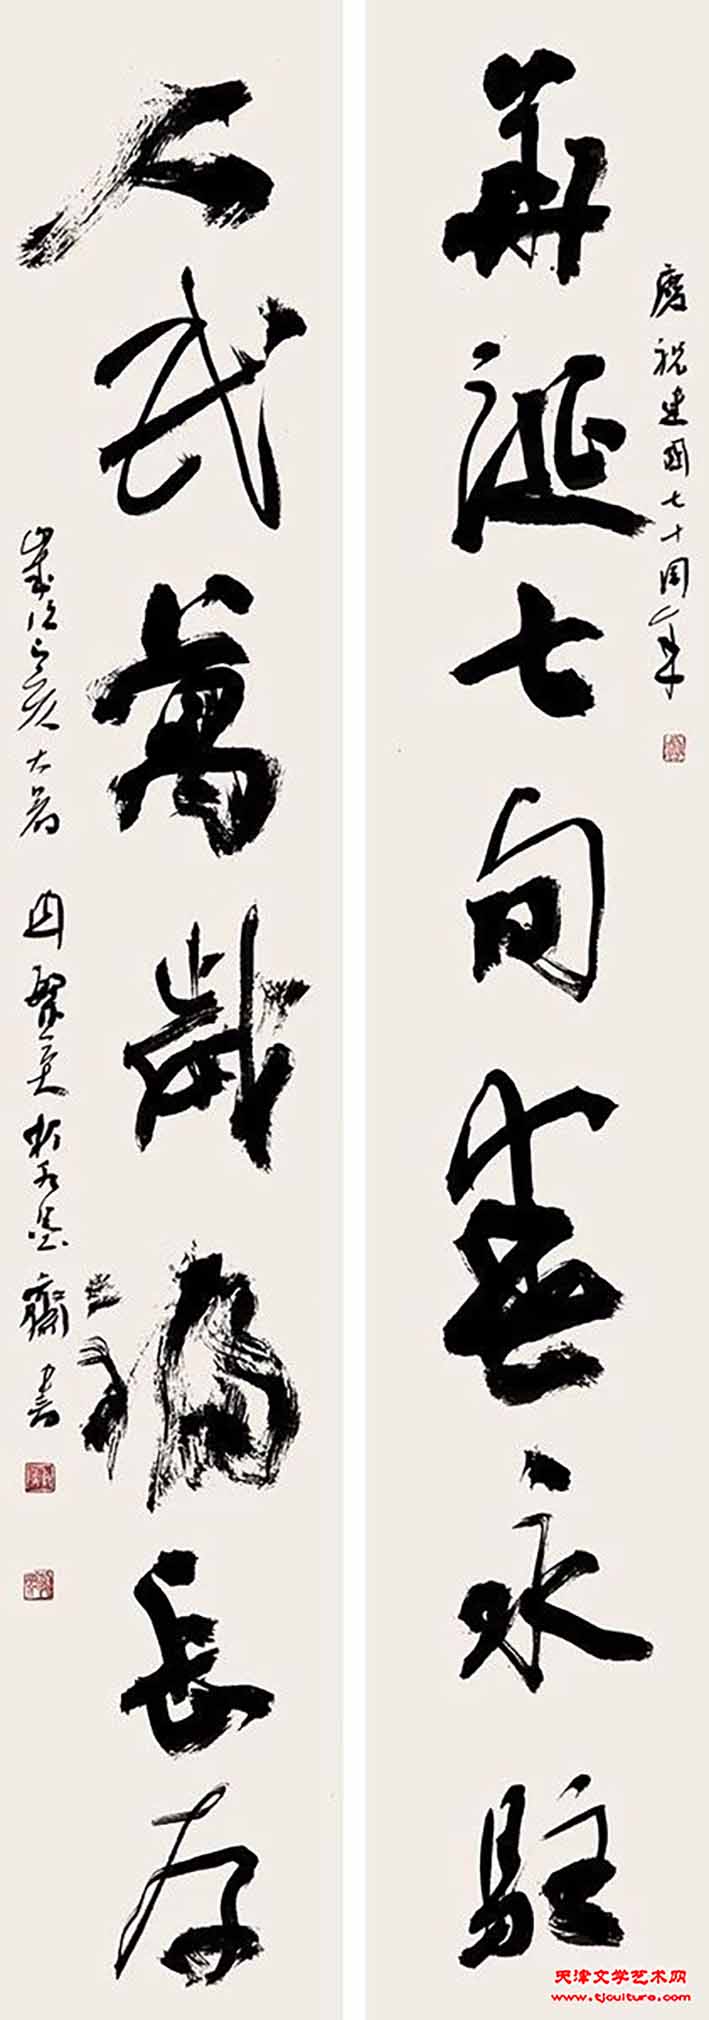 慶祝建國七十周年
華誕七旬春永駐
人民萬歲福長存
歲次己亥大暑 墨齋書
天津文学艺术网
www.tjculture.com